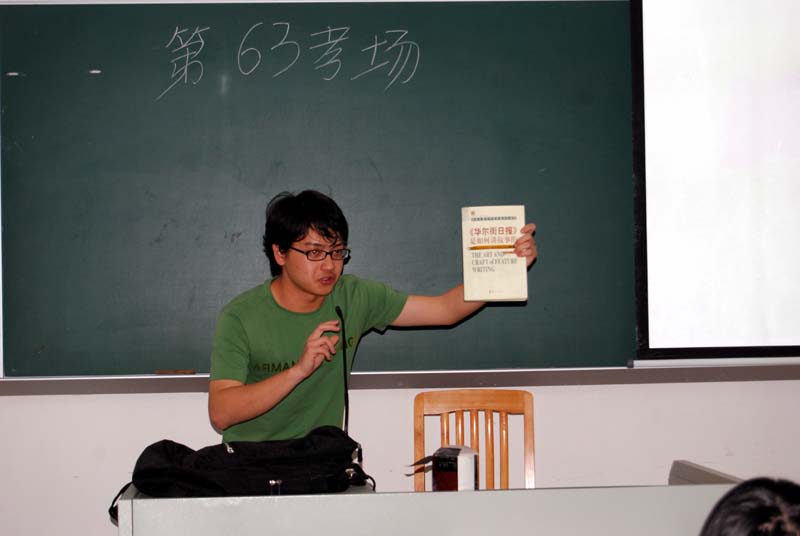 第63考场
《华尔街日报》
是如何讲故事的
THE ART AND
CRAFT of FEATURE
WRITING